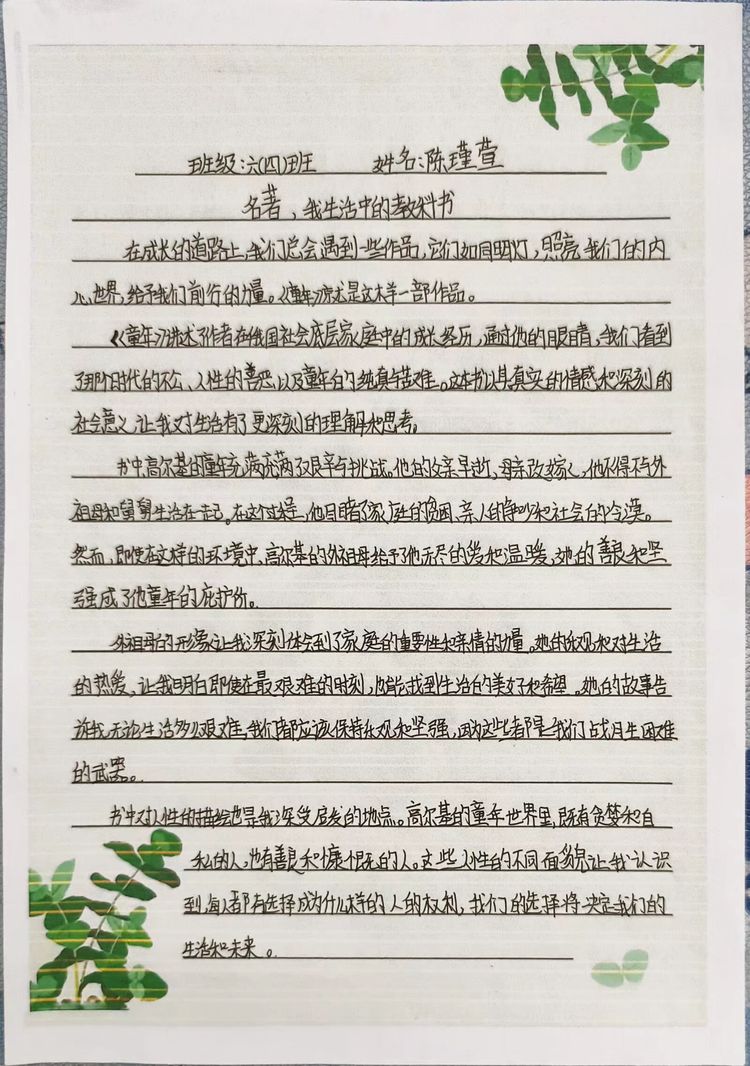 班级:六(四)班 姓名:陈瑾萱
名著、我生活中的教科书
在成长的道路上,我们总会遇到一些作品,它们如同明灯,照亮我们的内
心世界,给予我们前行的力量。《童年》就是这样一部作品。
《童年》讲述了作者在俄国社会底层家庭中的成长经历,通过他的眼睛,我们看到
了那个时代的不公、人性的善恶以及童年的纯真与苦难。这本书以其真实的情感和深刻的
社会意义,让我对生活有了更深刻的理解和思考。
书中高尔基的童年充满充满了艰辛与挑战。他的父亲早逝,母亲改嫁,他不得不与外
祖母和舅舅生活在一起。在这个过程,他目睹了家庭的贫困、亲人的争吵和社会的冷漠。
然而,即使在这样的环境中,高尔基的外祖母给予了他无尽的爱和温暖,她的善良和坚
强成了他童年的庇护伤。
外祖母的形象让我深刻体会到了家庭的重要性和亲情的力量。她的乐观和对生活
的热爱,让我明白即使在最艰难的时刻,也能找到生活的美好和希望。她的故事告
诉我,无论生活多么艰难,我们都应该保持乐观和坚强,因为这些都是我们战胜困难
的武器。
书中对人性的描绘也是我深受启发的地点。高尔基的童年世界里,既有贪婪和自
私的人,也有善良和慷慨无的人。这些人性的不同面貌让我认识
到,每人都有选择成为什么样的人的权利,我们的选择将决定我们的
生活和未来。